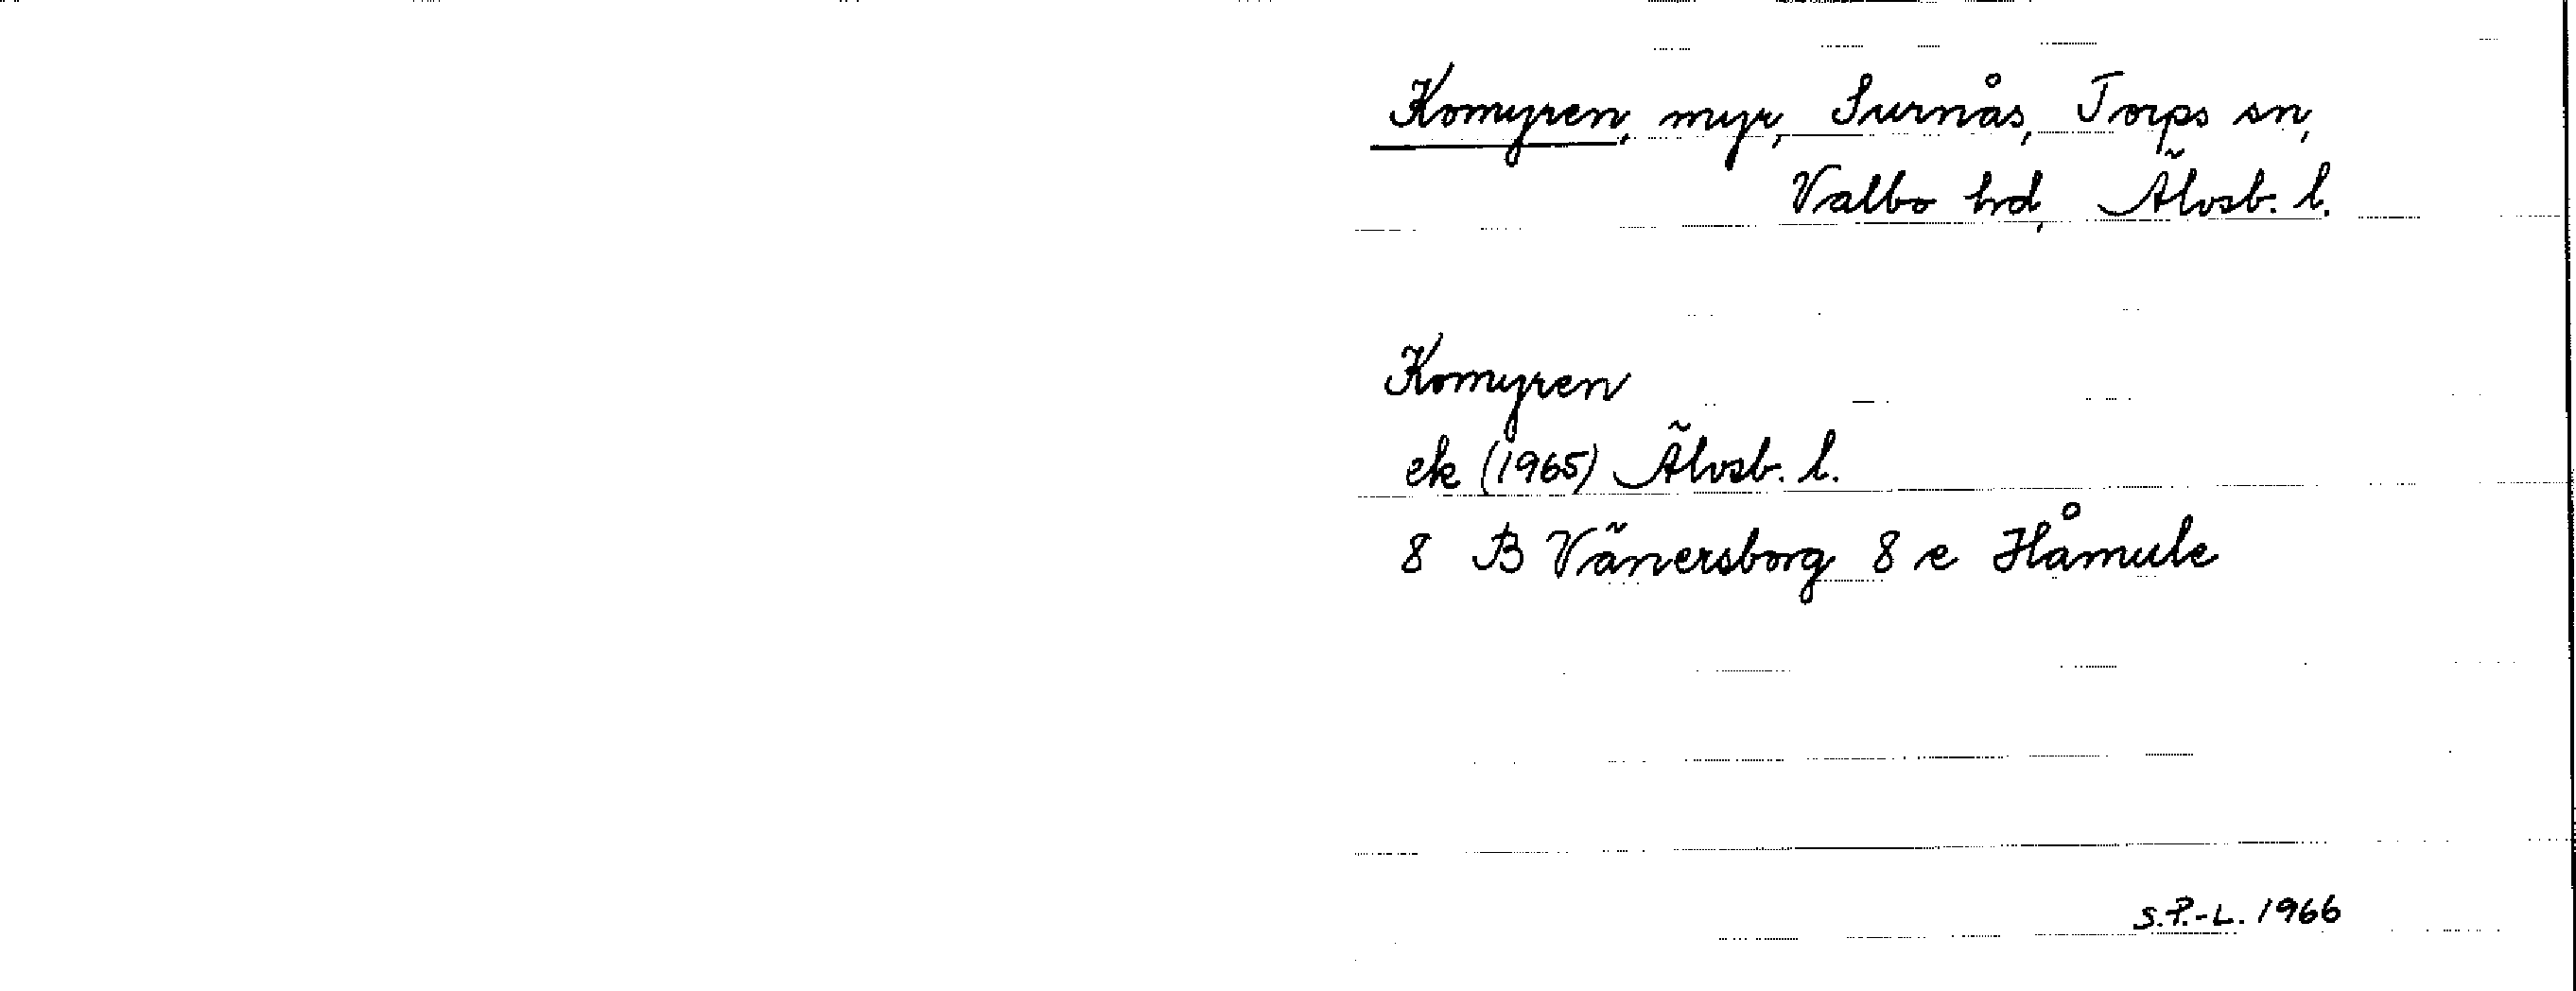 Komyren, myr, Surnås, Torps sn,
Valbo hd, Älvsb. l.
Komyren
ek (1965) Älvsb. l.
8 B Vänersborg 8 e Håmule
S.P.-L. 1966